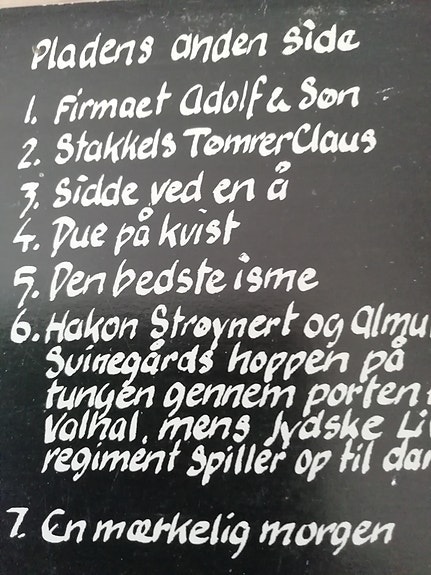 Pladens anden side
1. Firmaet Adolf & Søn
2. Stakkels Tømrer Claus
3. Sidde ved en å
4. Due på kvist
5. Den bedste isme
6. Hakon Strøynert og Almu
Svinegårds hoppen på
tungen gennem porten
Valhal, mens Jydske Li
regiment spiller op til dan
7. En mærkelig morgen